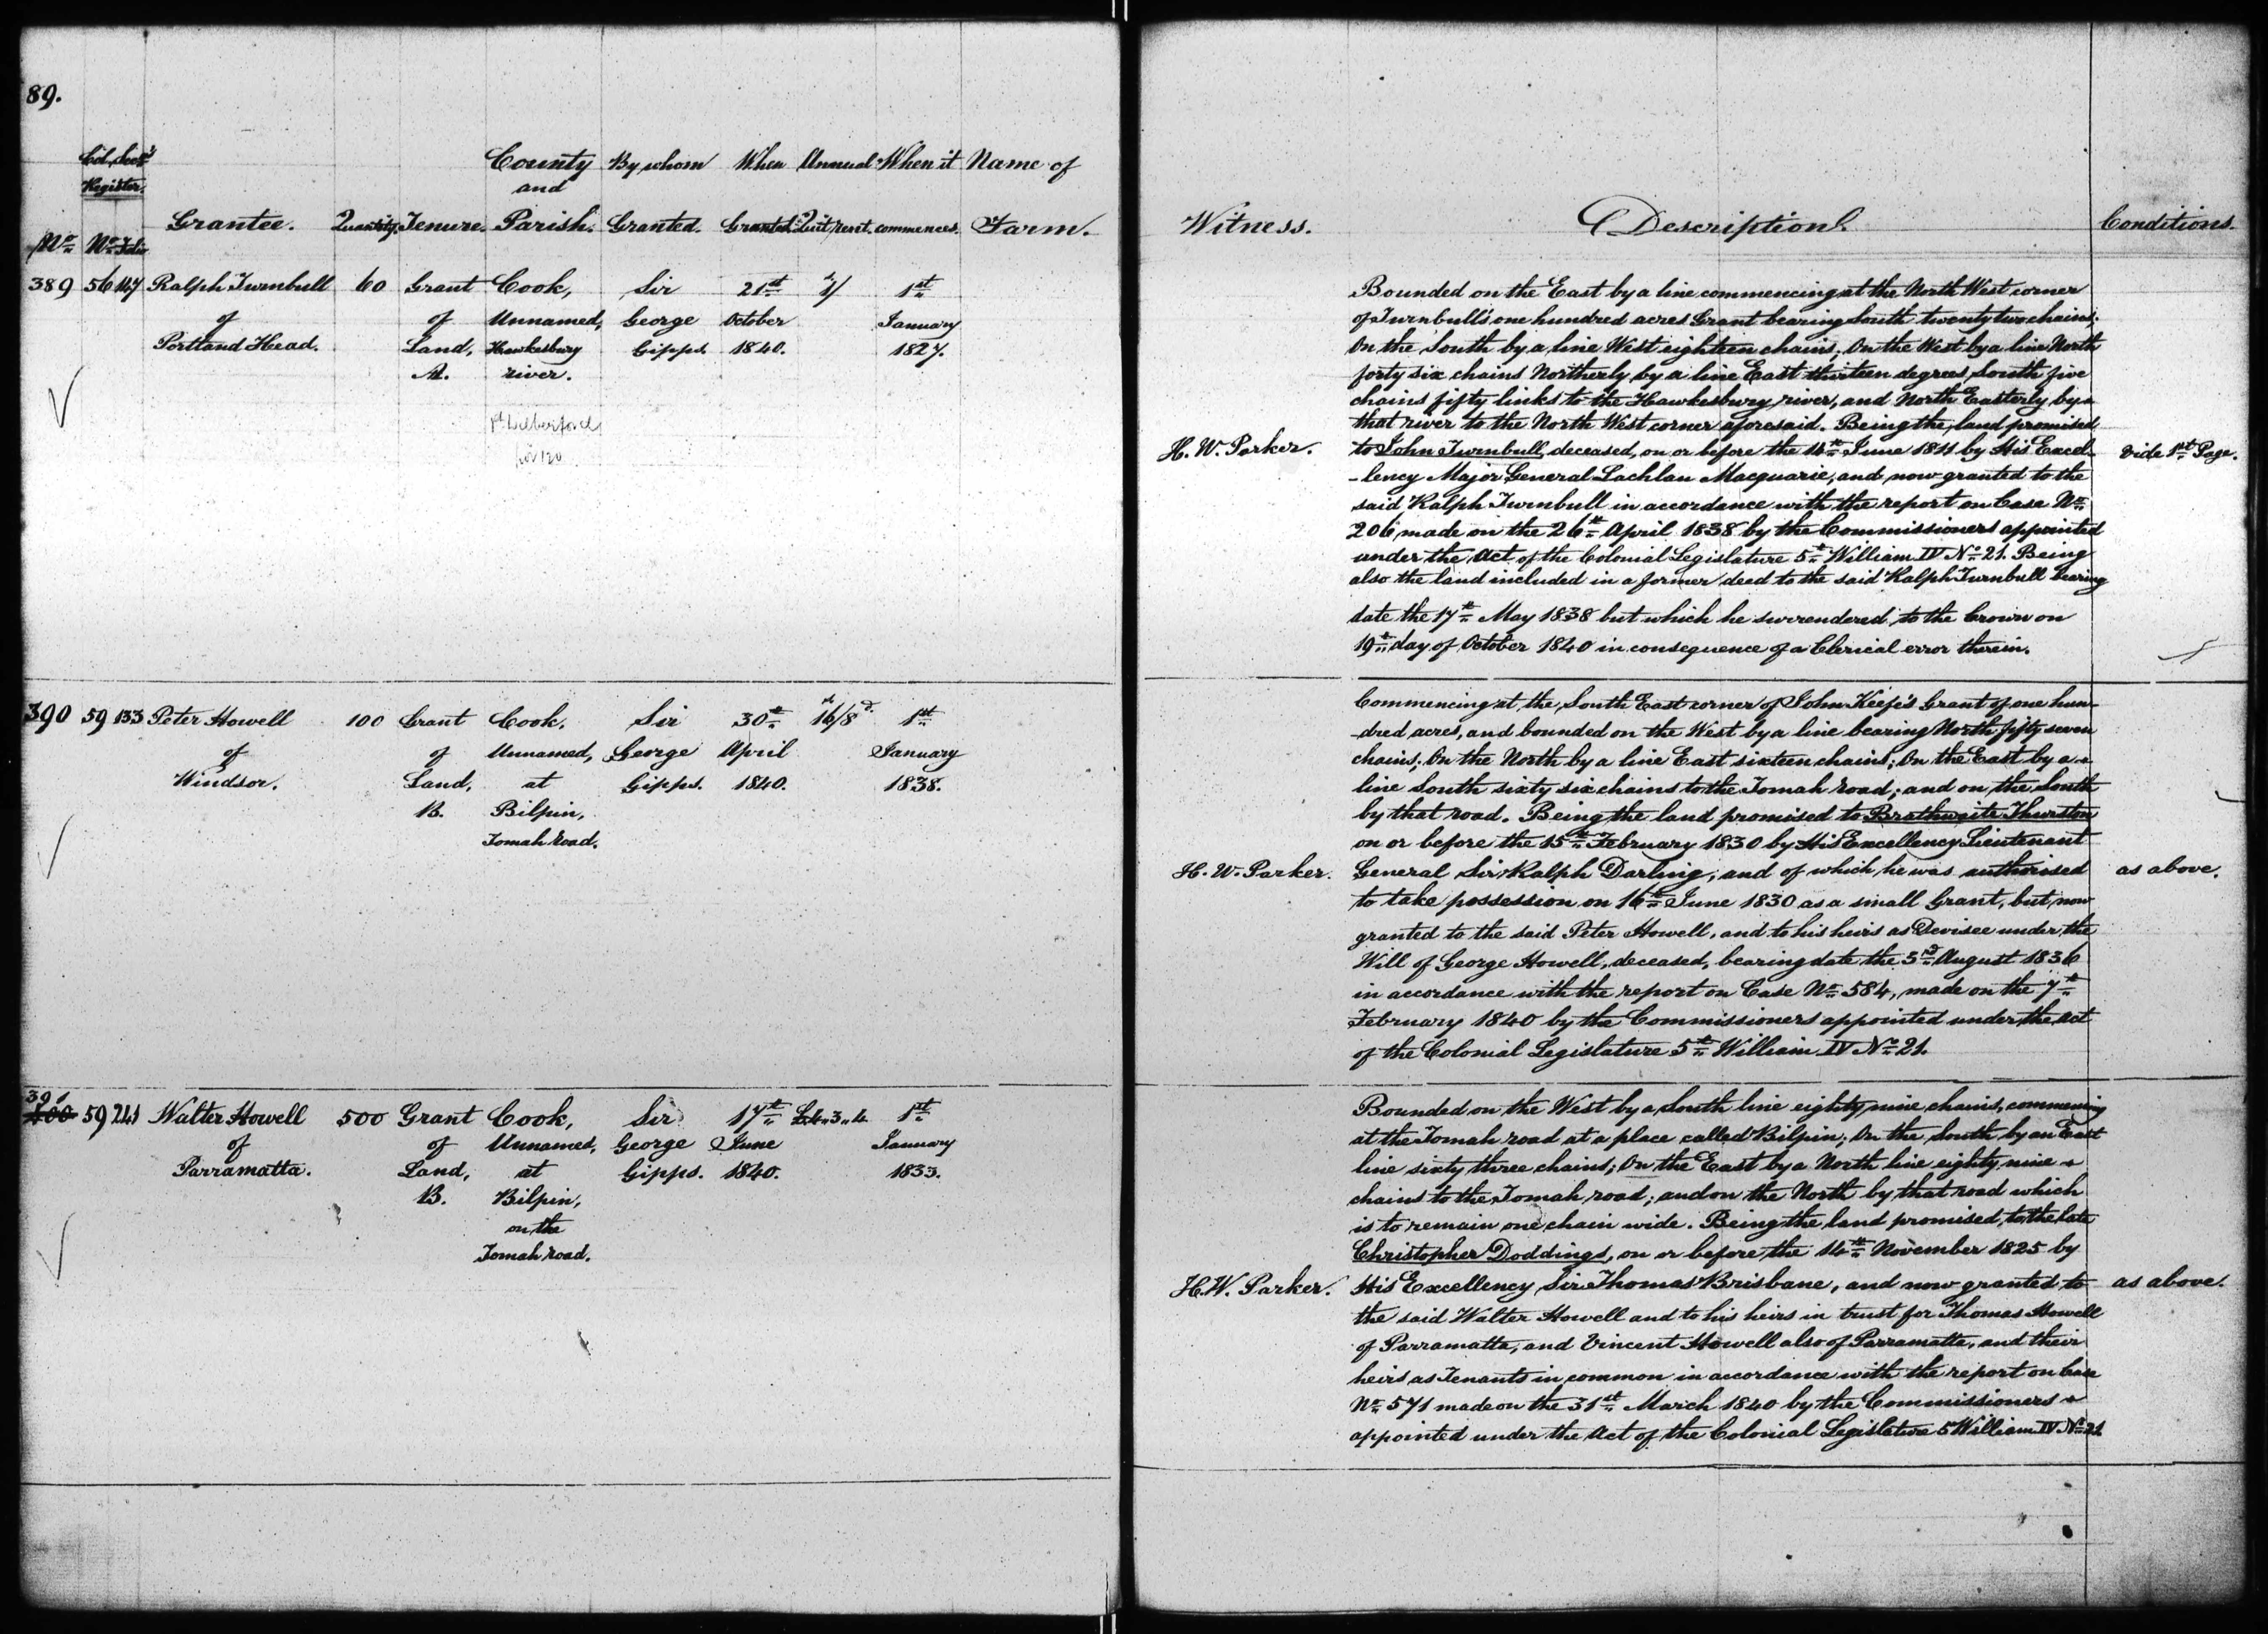 89.
Col. Sec's
Register.
County By whom When Annual When it Name of
and
Grantee. Quantity. Tenure. Parish. Granted. Granted. Quit rent. commences. Farm.
No. No. Folio
389 56 147 Ralph Turnbull 60 Grant Cook, Sir 21st 1st
of of Unnamed, George October January
Portland Head. Land, Hawkesbury Gipps. 1840. 1827.
A. river.
Pt. Wilberforce
390 59 133 Peter Howell 100 Grant Cook, Sir 30th 16/8d 1st
of of Unnamed, George April January
Windsor. Land, at Gipps. 1840. 1838.
B. Bilpin,
Tomah road.
391
400 59 241 Walter Howell 500 Grant Cook, Sir 17th £4.,3.,4 1st
of of Unnamed, George June January
Parramatta. Land, at Gipps. 1840. 1833.
B. Bilpin,
on the
Tomah road.
Witness. Description. Conditions.
Bounded on the East by a line commencing at the North West corner
of Turnbull's one hundred acres Grant bearing South twenty two chains;
On the South by a line West eighteen chains; On the West by a line North
forty six chains Northerly by a line East thirteen degrees South five
chains fifty links to the Hawkesbury river, and North Easterly by
that river to the North West corner aforesaid. Being the land promised
H. W. Parker. to John Turnbull, deceased, on or before the 14th June 1811 by His Excel- Vide 1st Page.
-lency Major General Lachlan Macquarie, and now granted to the
said Ralph Turnbull in accordance with the report on Case No.
206 made on the 26th April 1838 by the Commissioners appointed
under the Act of the Colonial Legislature 5th William IV No. 21. Being
also the land included in a former deed to the said Ralph Turnbull bearing
date the 17th May 1838 but which he surrendered to the Crown on
19th day of October 1840 in consequence of a Clerical error therein.
Commencing at the South East corner of John Keefe's Grant of one hun-
-dred acres, and bounded on the West by a line bearing North fifty seven
chains; On the North by a line East sixteen chains; On the East by a
line South sixty six chains to the Tomah road; and on the South
by that road. Being the land promised to Brathwaite Thurston
on or before the 15th February 1830 by His Excellency Lieutenant
H. W. Parker. General Sir Ralph Darling, and of which he was authorised as above.
to take possession on 16th June 1830 as a small Grant, but now
granted to the said Peter Howell, and to his heirs as Devisee under the
Will of George Howell, deceased, bearing date the 3rd August 1836
in accordance with the report on Case No. 584, made on the 7th
February 1840 by the Commissioners appointed under the Act
of the Colonial Legislature 5th William IV No. 21.
Bounded on the West by a South line eighty nine chains, commencing
at the Tomah road at a place called Bilpin; On the South by an East
line sixty three chains; On the East by a North line eighty nine
chains to the Tomah road; and on the North by that road which
is to remain one chain wide. Being the land promised to the late
Christopher Doddings, on or before the 14th November 1825 by
H. W. Parker. His Excellency Sir Thomas Brisbane, and now granted to as above.
the said Walter Howell and to his heirs in trust for Thomas Howell
of Parramatta, and Vincent Howell also of Parramatta, and their
heirs as Tenants in common in accordance with the report on Case
No. 571 made on the 31st March 1840 by the Commissioners
appointed under the Act of the Colonial Legislature 5 William IV No. 21.